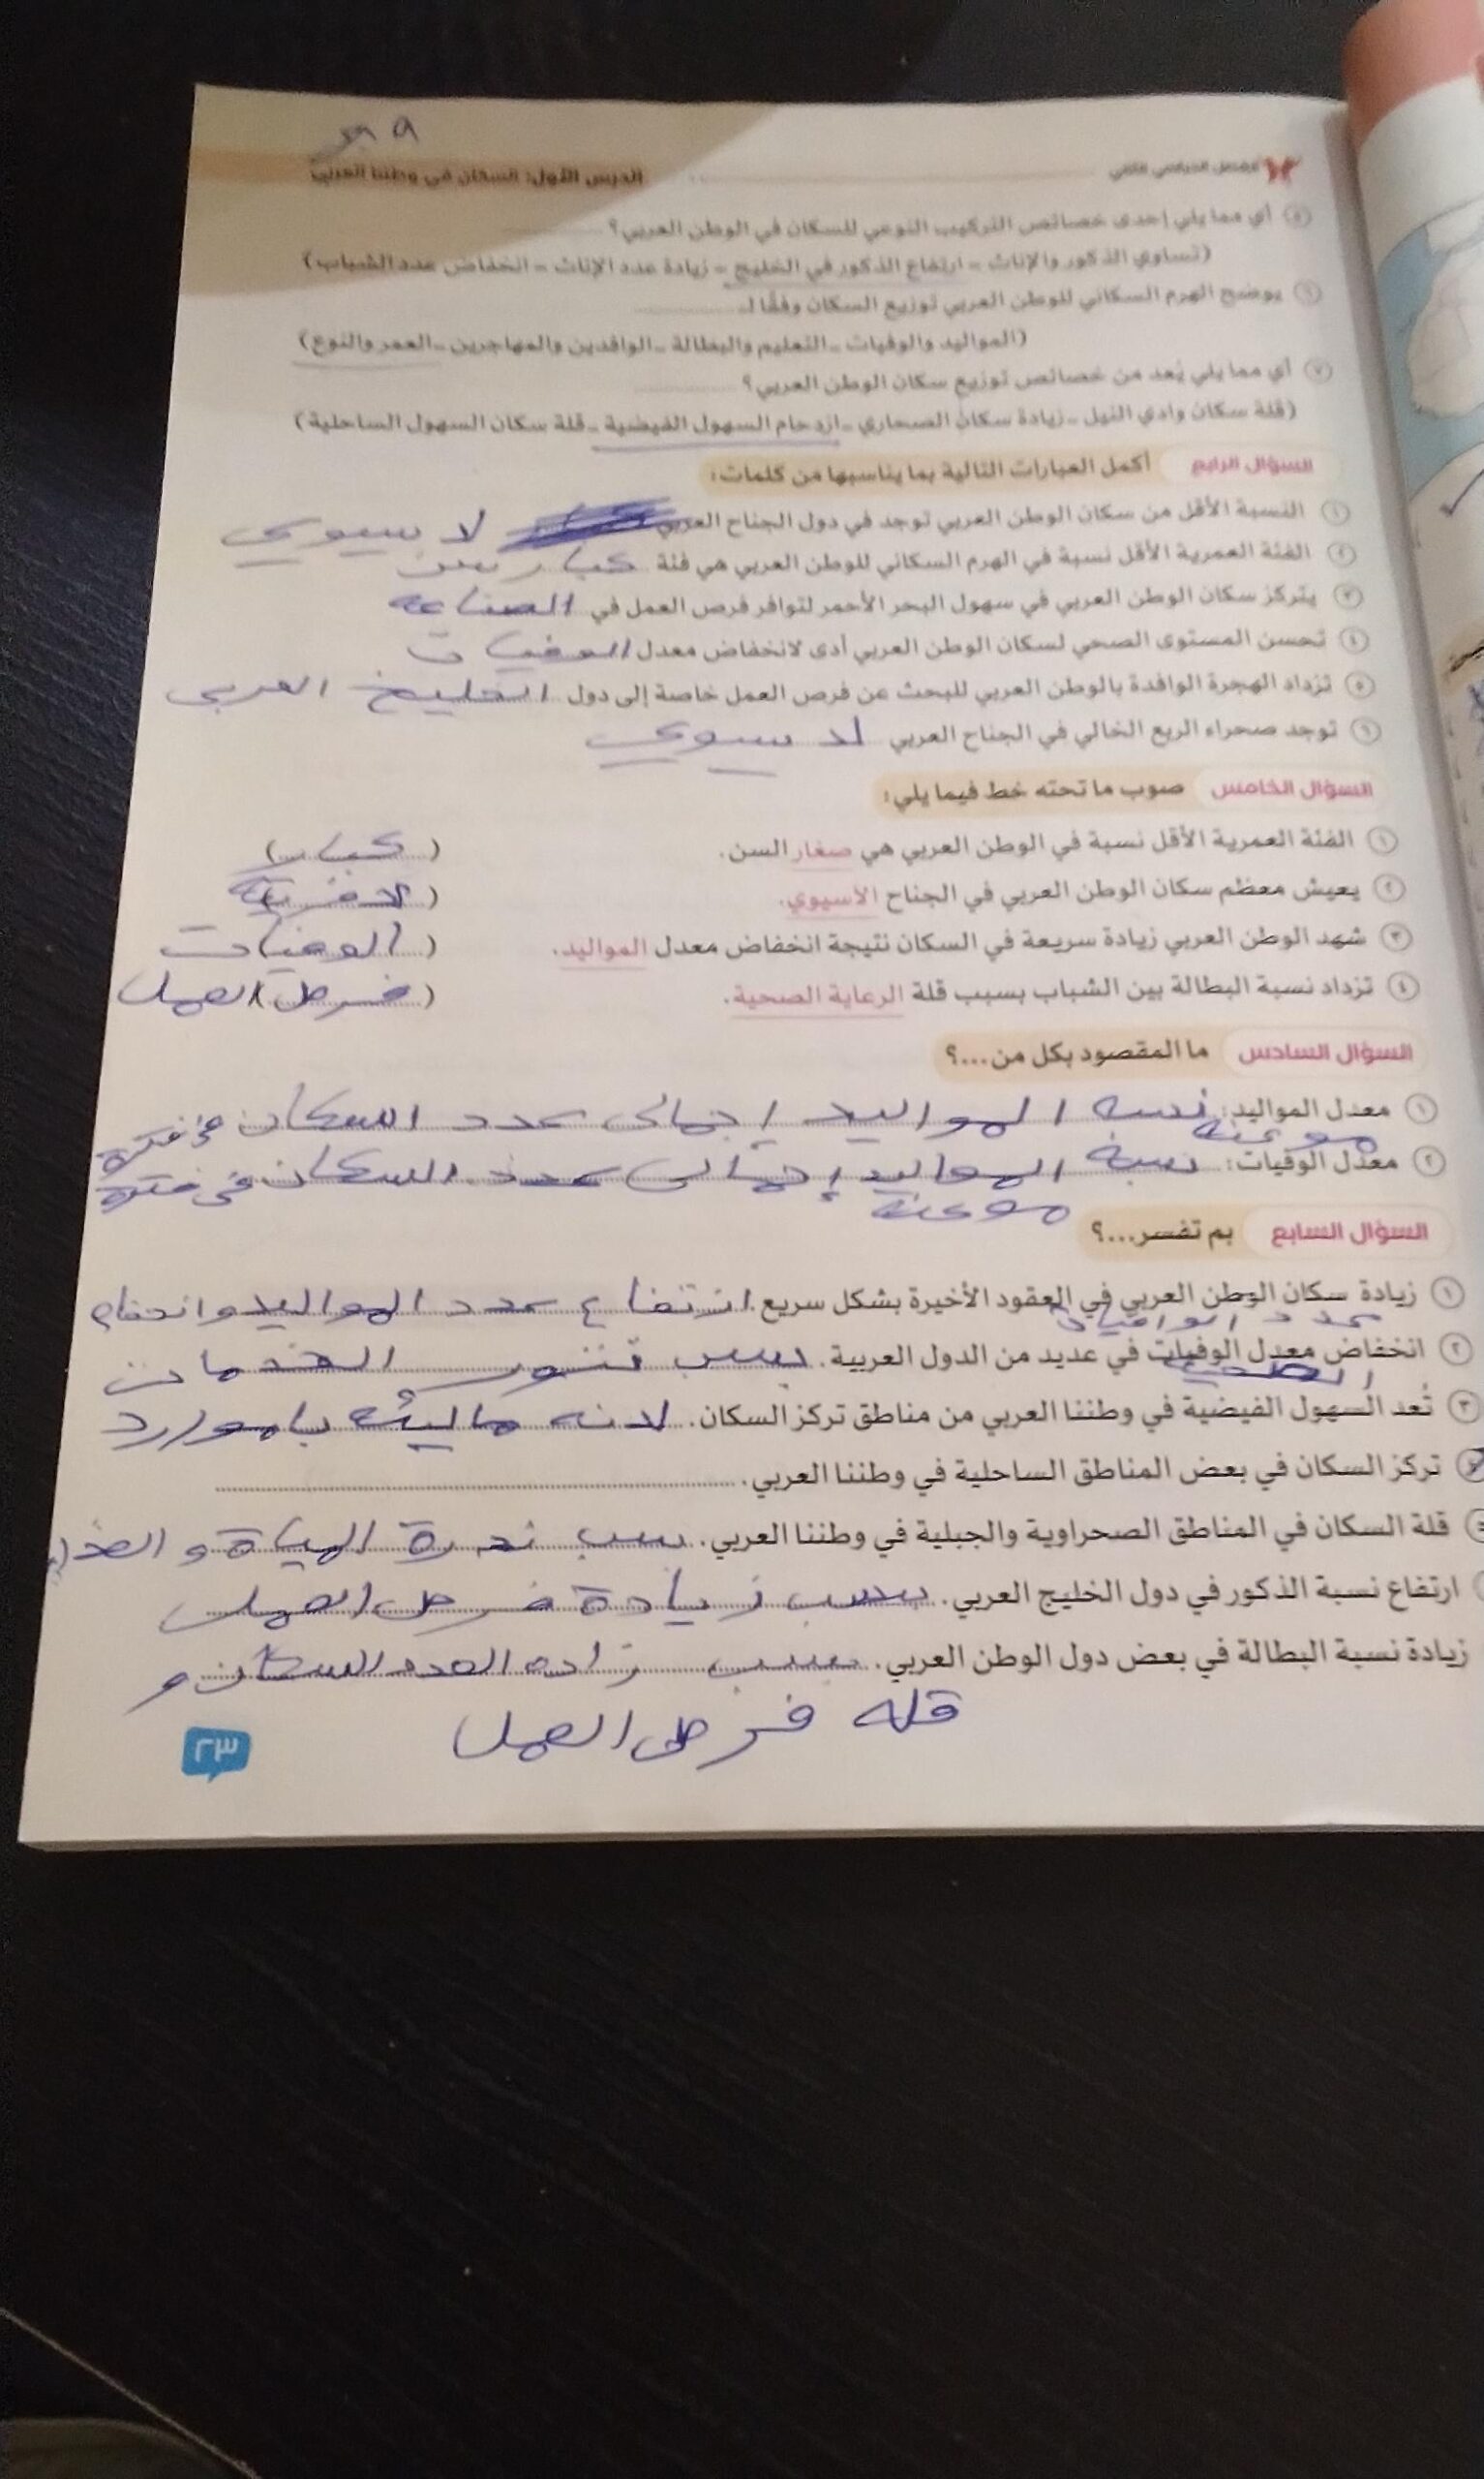 الدرس الأول: السكان في وطننا العربي
٥ أي مما يلي إحدى خصائص التركيب النوعي للسكان في الوطن العربي؟
(تساوي الذكور والإناث - ارتفاع الذكور في الخليج - زيادة عدد الإناث - انخفاض عدد الشباب)
٦ يوضح الهرم السكاني للوطن العربي توزيع السكان وفقًا لـ
(المواليد والوفيات - التعليم والبطالة - الوافدين والمهاجرين - العمر والنوع)
٧ أي مما يلي يُعد من خصائص توزيع سكان الوطن العربي؟
(قلة سكان وادي النيل - زيادة سكان الصحاري - ازدحام السهول الفيضية - قلة سكان السهول الساحلية)
السؤال الرابع أكمل العبارات التالية بما يناسبها من كلمات:
١ النسبة الأقل من سكان الوطن العربي توجد في دول الجناح العربي لا سيوي
٢ الفئة العمرية الأقل نسبة في الهرم السكاني للوطن العربي هي فئة كبار سن
٣ يتركز سكان الوطن العربي في سهول البحر الأحمر لتوافر فرص العمل في الصناعه
٤ تحسن المستوى الصحي لسكان الوطن العربي أدى لانخفاض معدل الوفيات
٥ تزداد الهجرة الوافدة بالوطن العربي للبحث عن فرص العمل خاصة إلى دول الخليج العربي
٦ توجد صحراء الربع الخالي في الجناح العربي لا سيوي
السؤال الخامس صوب ما تحته خط فيما يلي:
١ الفئة العمرية الأقل نسبة في الوطن العربي هي صغار السن. (كبار)
٢ يعيش معظم سكان الوطن العربي في الجناح الآسيوي. (
٣ شهد الوطن العربي زيادة سريعة في السكان نتيجة انخفاض معدل المواليد. (الوفيات
٤ تزداد نسبة البطالة بين الشباب بسبب قلة الرعاية الصحية. (فرص العمل
السؤال السادس ما المقصود بكل من...؟
١ معدل المواليد: نسبه المواليد إجمالى عدد السكان في فترة
٢ معدل الوفيات: نسبة المواليد إجمالى عدد السكان في فترة
السؤال السابع بم تفسر...؟
١ زيادة سكان الوطن العربي في العقود الأخيرة بشكل سريع. ارتفاع عدد المواليد وانخفاض
عدد الوافيات
٢ انخفاض معدل الوفيات في عديد من الدول العربية. بسبب الخدمات
٣ تُعد السهول الفيضية في وطننا العربي من مناطق تركز السكان. لانه مالیئه باموارد
تركز السكان في بعض المناطق الساحلية في وطننا العربي.
قلة السكان في المناطق الصحراوية والجبلية في وطننا العربي. بسبب ندرة المياة و
ارتفاع نسبة الذكور في دول الخليج العربي. بسبب زيادة فرص العمل
زيادة نسبة البطالة في بعض دول الوطن العربي. بسبب زاده العدد السكان و
قله فرص العمل
٢٣